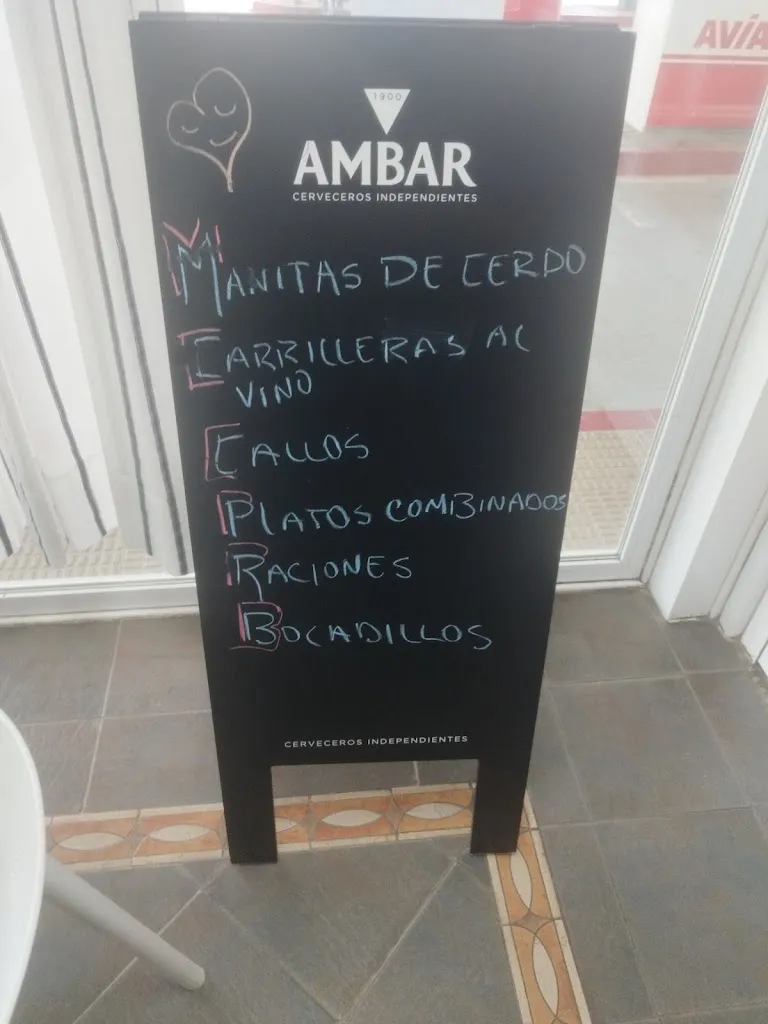 AVIA
1900
AMBAR
CERVECEROS INDEPENDIENTES
MANITAS DE CERDO
CARRILLERAS AL
VINO
CALLOS
PLATOS COMBINADOS
RACIONES
BOCADILLOS
CERVECEROS INDEPENDIENTES